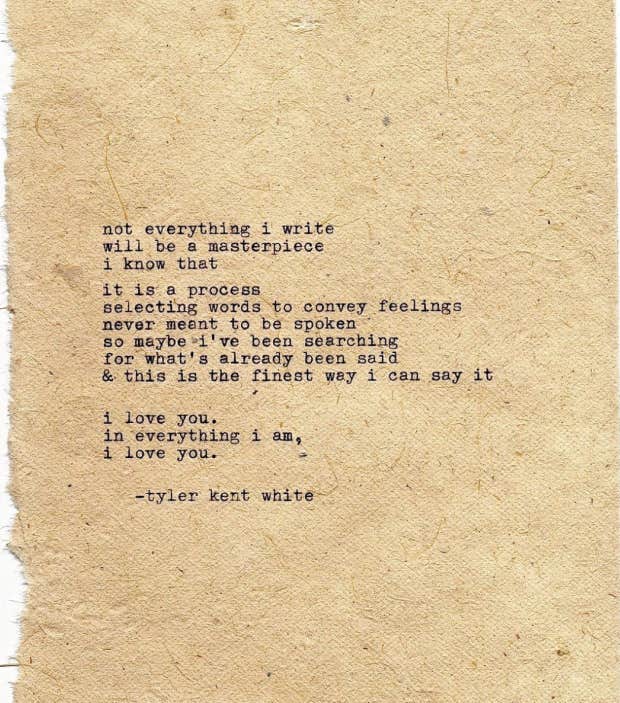 not everything i write
will be a masterpiece
i know that
it is a process
selecting words to convey feelings
never meant to be spoken
so maybe i've been searching
for what's already been said
& this is the finest way i can say it
i love you.
in everything i am,
i love you.
-tyler kent white